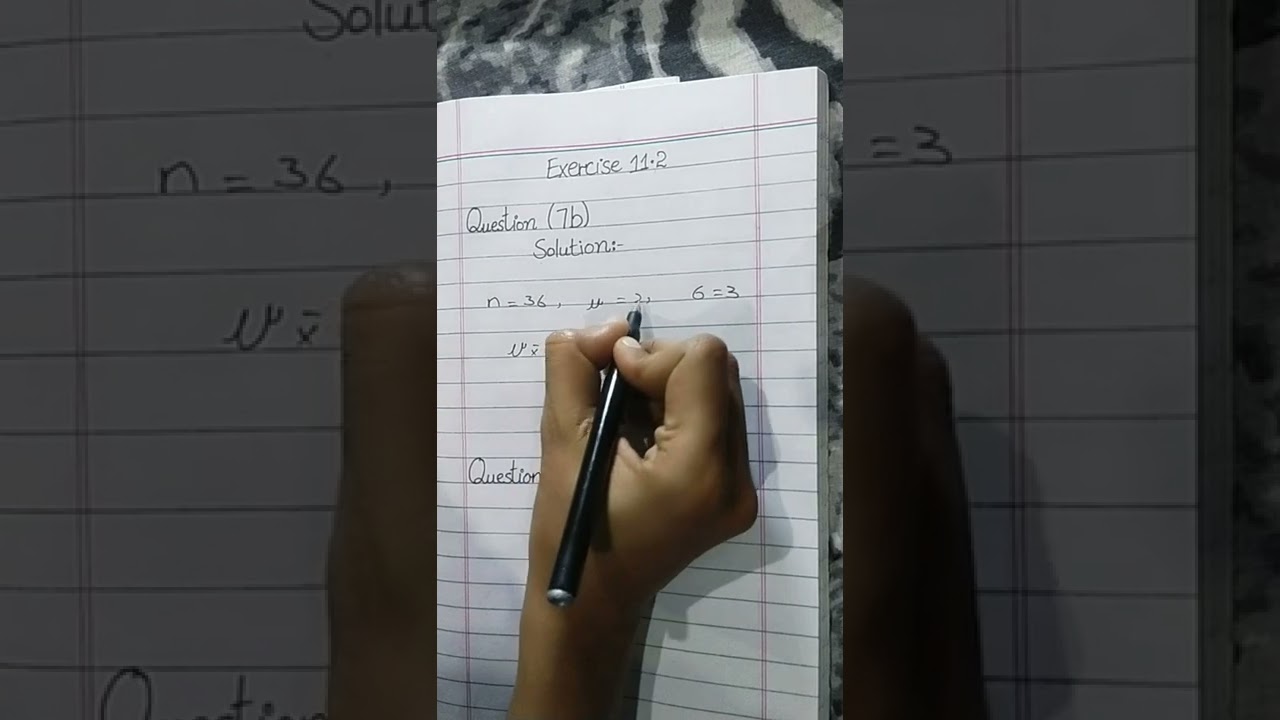 Exercise 11.2
Question (7b)
Solution:-
n = 36, μ = 6 = 3
μx̄
Question